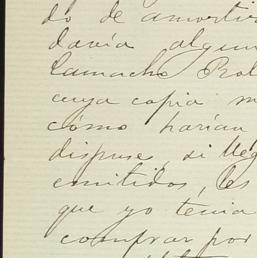 do de amortiz
davía algun
Camacho Rol
cuya copia m
cómo harían
dispuse, si lleg
emitidos, les
que yo tenia
comprar por